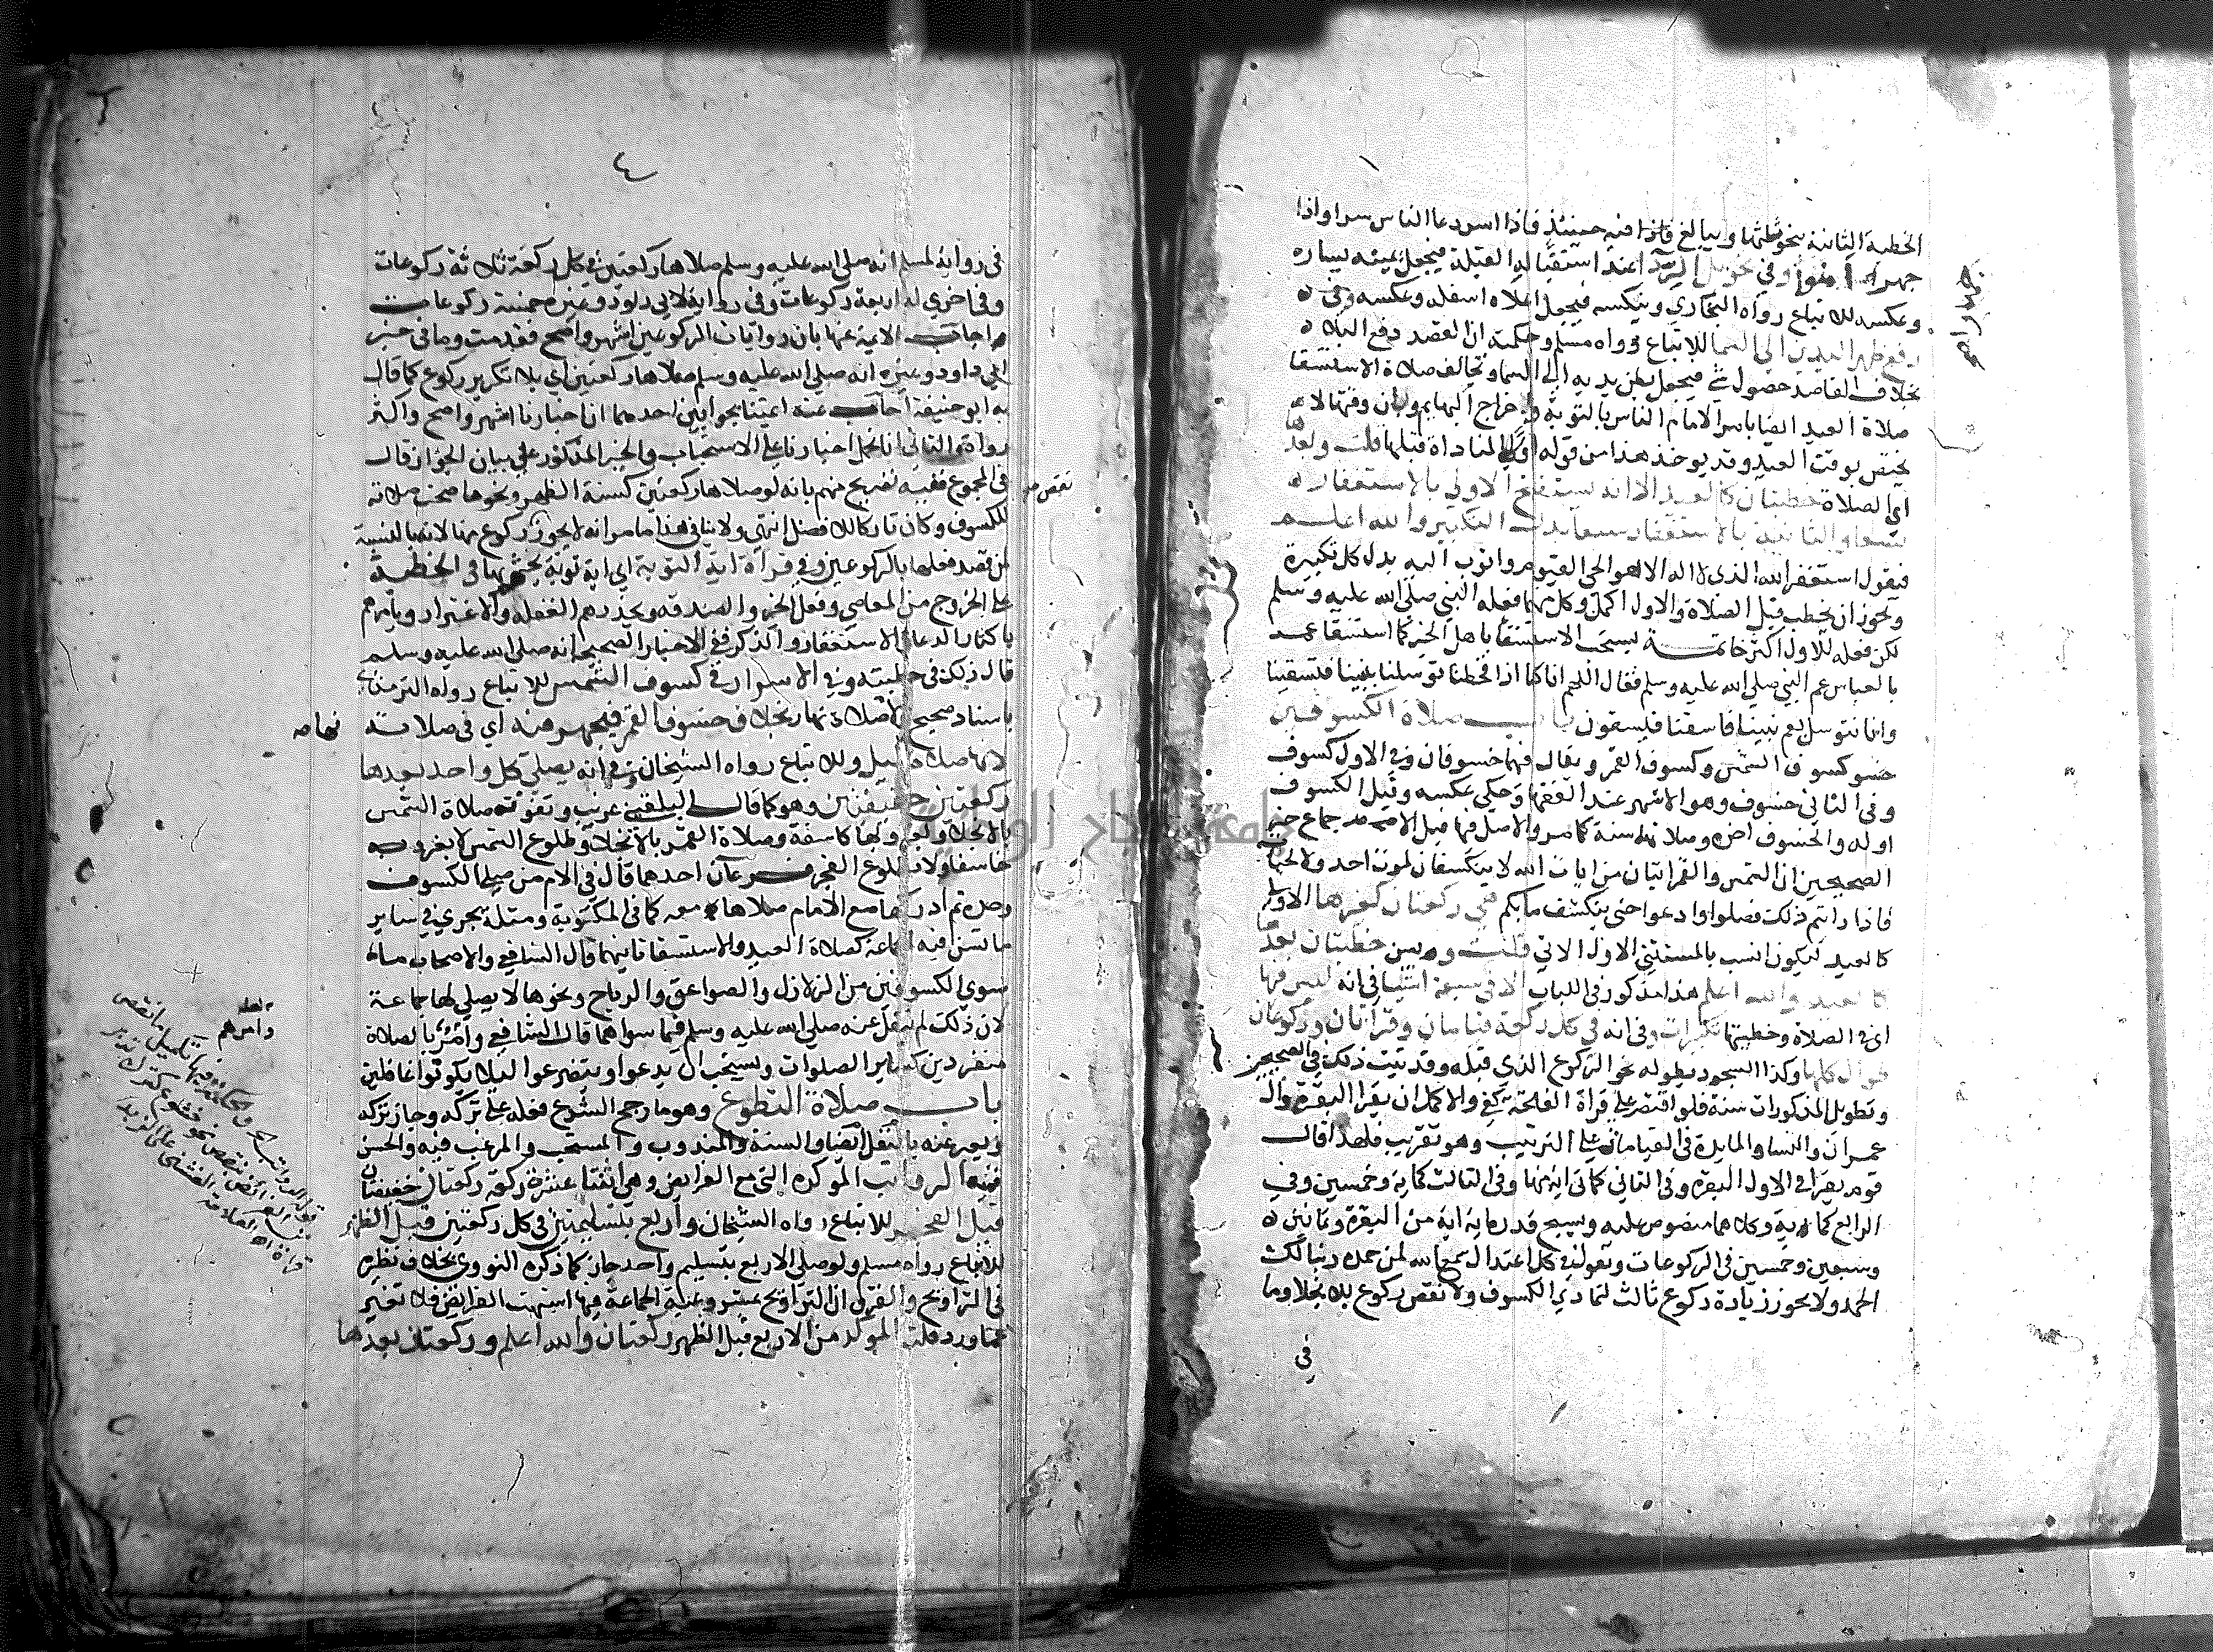 الخطبة الثانية نحو ثلثها ويبالغ فيه حينئذ فاذا اسر دعا الناس سرا واذا
جهر امنوا وفي تحويل الرداء عند استقباله القبلة فيجعل يمينه يساره
وعكسه للاتباع رواه البخاري وينكسه فيجعل اعلاه اسفله وعكسه وفي
رفع ظهر اليدين الى السما للاتباع رواه مسلم وحكمته ان القصد دفع البلا
بخلاف القاصد حصول شي فيجعل بطن يديه الى السما وتخالف صلاة الاستسقا
صلاة العيد ايضا بامر الامام الناس بالتوبة وباخراج البهايم وبان وقتها لا
يختص بوقت العيد وقد يوخذ هذا من قوله اولا لمناداة قبلها قلت وبعدها
اي الصلاة خطبتان كالعيد الا انه يستفتح الاولى بالاستغفار
تسعا والثانية بالاستغفار سبعا بدل التكبير والله اعلم
فيقول استغفر الله الذي لا اله الا هو الحي القيوم واتوب اليه بدل كل تكبيرة
ويجوز ان يخطب قبل الصلاة والاول اكمل وكل منهما فعله النبي صلى الله عليه وسلم
لكن فعله للاول اكثر خاتمة يستحب الاستسقا باهل الخير كما استسقا عمر
بالعباس عم النبي صلى الله عليه وسلم فقال اللهم انا كنا اذا قحطنا توسلنا بنبينا فتسقينا
وانا نتوسل بعم نبينا فاسقنا فيسقون باب صلاة الكسوفين
كسوف الشمس وكسوف القمر ويقال فيهما خسوفان وفي الاول كسوف
وفي الثاني خسوف وهو الاشهر عند الفقها وحكي عكسه وقيل الكسوف
اوله والخسوف اخره وصلاتهما سنة كما مر والاصل فيها قبل الاجماع خبر
الصحيحين ان الشمس والقمر ايتان من ايات الله لا ينكسفان لموت احد ولا لحياته
فاذا رايتم ذلك فصلوا وادعوا حتى ينكشف ما بكم هي ركعتان كغيرها الاولى
كالعيد ليكون انسب بالمستثنى الاول الاتي قلت ويسن خطبتان بعدها
كالعيد والله اعلم هذا مذكور في اللباب الا في سبعة اشيا في انه ليس فيها
اي في الصلاة وخطبتها تكبيرات وفي انه في كل ركعة قيامان وقراتان وركوعان
طوال كلها وكذا السجود يطوله نحو الركوع الذي قبله وقد ثبت ذلك في الصحيحين
وتطويل المذكورات سنة فلو اقتصر على قراة الفاتحة كفى والاكمل ان يقرا البقرة وال
عمران والنسا والمايدة في القيامات على الترتيب وهو تقريب فلهذا قال
قوم يقرا في الاول البقرة وفي الثاني كماتي اية منها وفي الثالث كماية وخمسين وفي
الرابع كماية وكلاهما منصوص عليه ويسبح قدر ماية اية من البقرة وثمانين
وسبعين وخمسين في الركوعات وتقول في كل اعتدال سمع الله لمن حمده ربنا لك
الحمد ولا يجوز زيادة ركوع ثالث لتمادي الكسوف ولا نقص ركوع بلا نجلا وما
في
٤
في رواية لمسلم انه صلى الله عليه وسلم صلاها ركعتين في كل ركعة ثلاثة ركوعات
وفي اخرى له اربعة ركوعات وفي رواية لابي داود وغيره خمسة ركوعات
اجاب الايمة عنها بان روايات الركوعين اشهر واصح فقدمت وما في خبر
ابي داود وغيره انه صلى الله عليه وسلم صلاها ركعتين اي بلا تكرير ركوع كما قال
به ابو حنيفة اجاب عنه ايمتنا بجوابين احدهما ان اخبارنا اشهر واصح واكثر
رواة والثاني انا نحمل اخبارنا على الاستحباب والخبر المذكور على بيان الجواز قال
في المجموع ففيه تصريح منهم بانه لو صلاها ركعتين كسنة الظهر ونحوها صحت صلاته
للكسوف وكان تاركا للافضل انتهى ولا ينافي هذا ما مر انه لا يجوز ركوع منها لانه بالنسبة
لمن قصد فعلها بالركوعين وفي قراة اية التوبة اي اية توبة يحثهم بها في الخطبة
على الخروج من المعاصي وفعل الخير والصدقة ويحذرهم الغفلة والاغترار ويامرهم
باكثار الدعا والاستغفار والذكر ففي الاخبار الصحيحة انه صلى الله عليه وسلم
قال ذلك في خطبته وفي الاسرار في كسوف الشمس للاتباع رواه الترمذي
باسناد صحيح صلاة نهار بخلاف خسوف القمر فيجهر فيه اي في صلاته
لانها صلاة ليل وللاتباع رواه الشيخان وفي انه يصلي كل واحد بعدها
ركعتين خفيفتين وهو كما قال البلقيني غريب وتفوت صلاة الشمس
بالانجلا وبغروبها كاسفة وصلاة القمر بالانجلا وطلوع الشمس لا بغروبه
خاسفا ولا بطلوع الفجر فرعان احدهما قال في الام من صلى الكسوف
وحده ثم ادركها مع الامام صلاها معه كما في المكتوبة ومثله يجري في ساير
ما تسن فيه الجماعة كصلاة العيد والاستسقا ثانيهما قال الشافعي والاصحاب ما
سوى الكسوفين من الزلازل والصواعق والرياح ونحوها لا يصلى لها جماعة
لان ذلك لم ينقل عنه صلى الله عليه وسلم فيما سواهما قال الشافعي وامر بالصلاة
منفردين كساير الصلوات ويستحب ان يدعوا ويتضرعوا ليلا يكونوا غافلين
باب صلاة التطوع وهو ما رجح الشرع فعله على تركه وجاز تركه
ويعبر عنه بالنفل ايضا والسنة والمندوب والمستحب والمرغب فيه والحسن
فمنه الرواتب الموكدة التي مع الفرايض وهي اثنتا عشرة ركعة ركعتان خفيفتان
قبل الفجر للاتباع رواه الشيخان واربع بتسليمتين في كل ركعتين قبل الظهر
للاتباع رواه مسلم ولو صلى الاربع بتسليم واحد جاز كما ذكره النووي بخلاف نظيره
في التراويح والفرق ان التراويح بمشروعية الجماعة فيها اشبهت الفرايض فلا تغير
عما ورد قلت الموكد من الاربع قبل الظهر ركعتان والله اعلم وركعتان بعدها